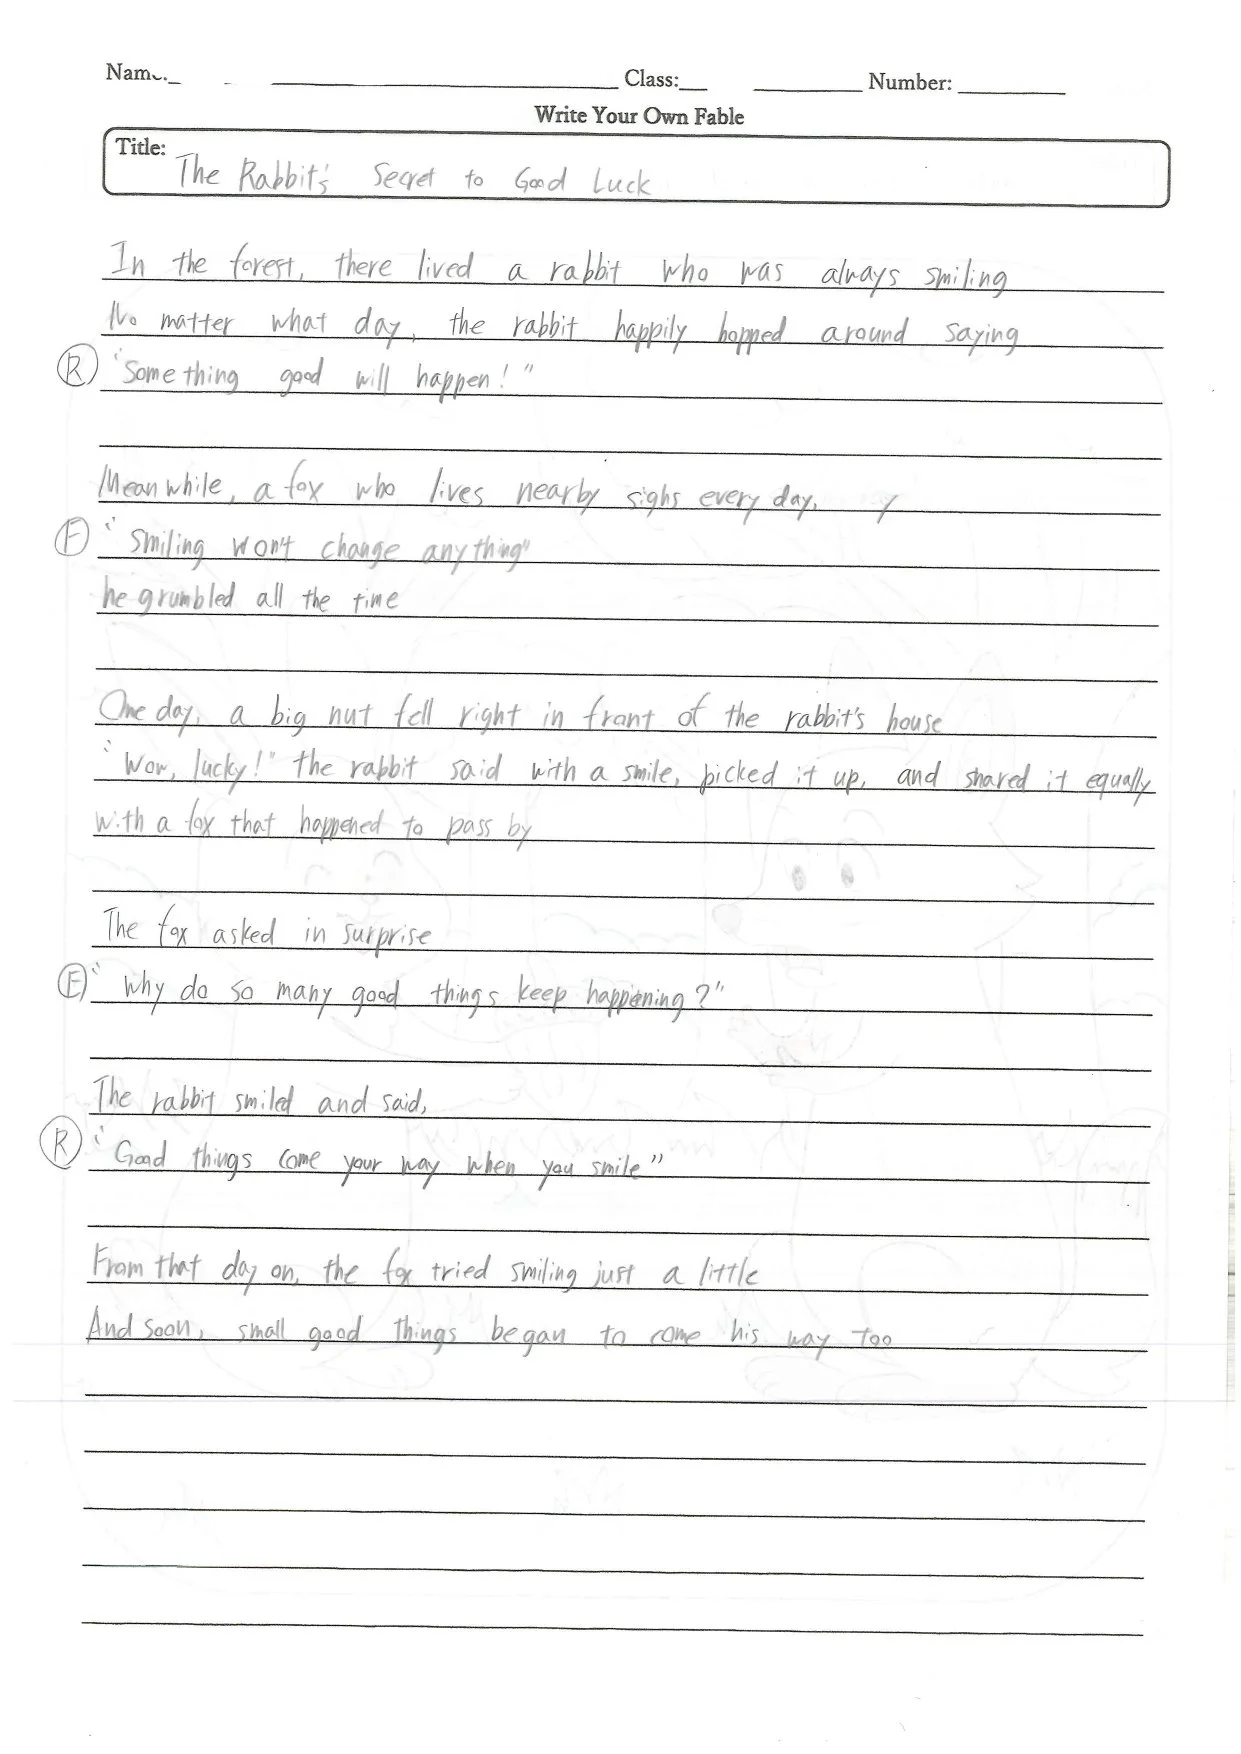 Name: Class: Number:
Write Your Own Fable
Title:
The Rabbit's Secret to Good Luck
In the forest, there lived a rabbit who was always smiling
No matter what day, the rabbit happily hopped around saying
R "Something good will happen!"
Meanwhile, a fox who lives nearby sighs every day.
F "Smiling won't change anything"
he grumbled all the time
One day, a big nut fell right in front of the rabbit's house
"Wow, lucky!" the rabbit said with a smile, picked it up, and shared it equally
with a fox that happened to pass by
The fox asked in surprise
F "Why do so many good things keep happening?"
The rabbit smiled and said,
R "Good things come your way when you smile"
From that day on, the fox tried smiling just a little
And soon, small good things began to come his way too